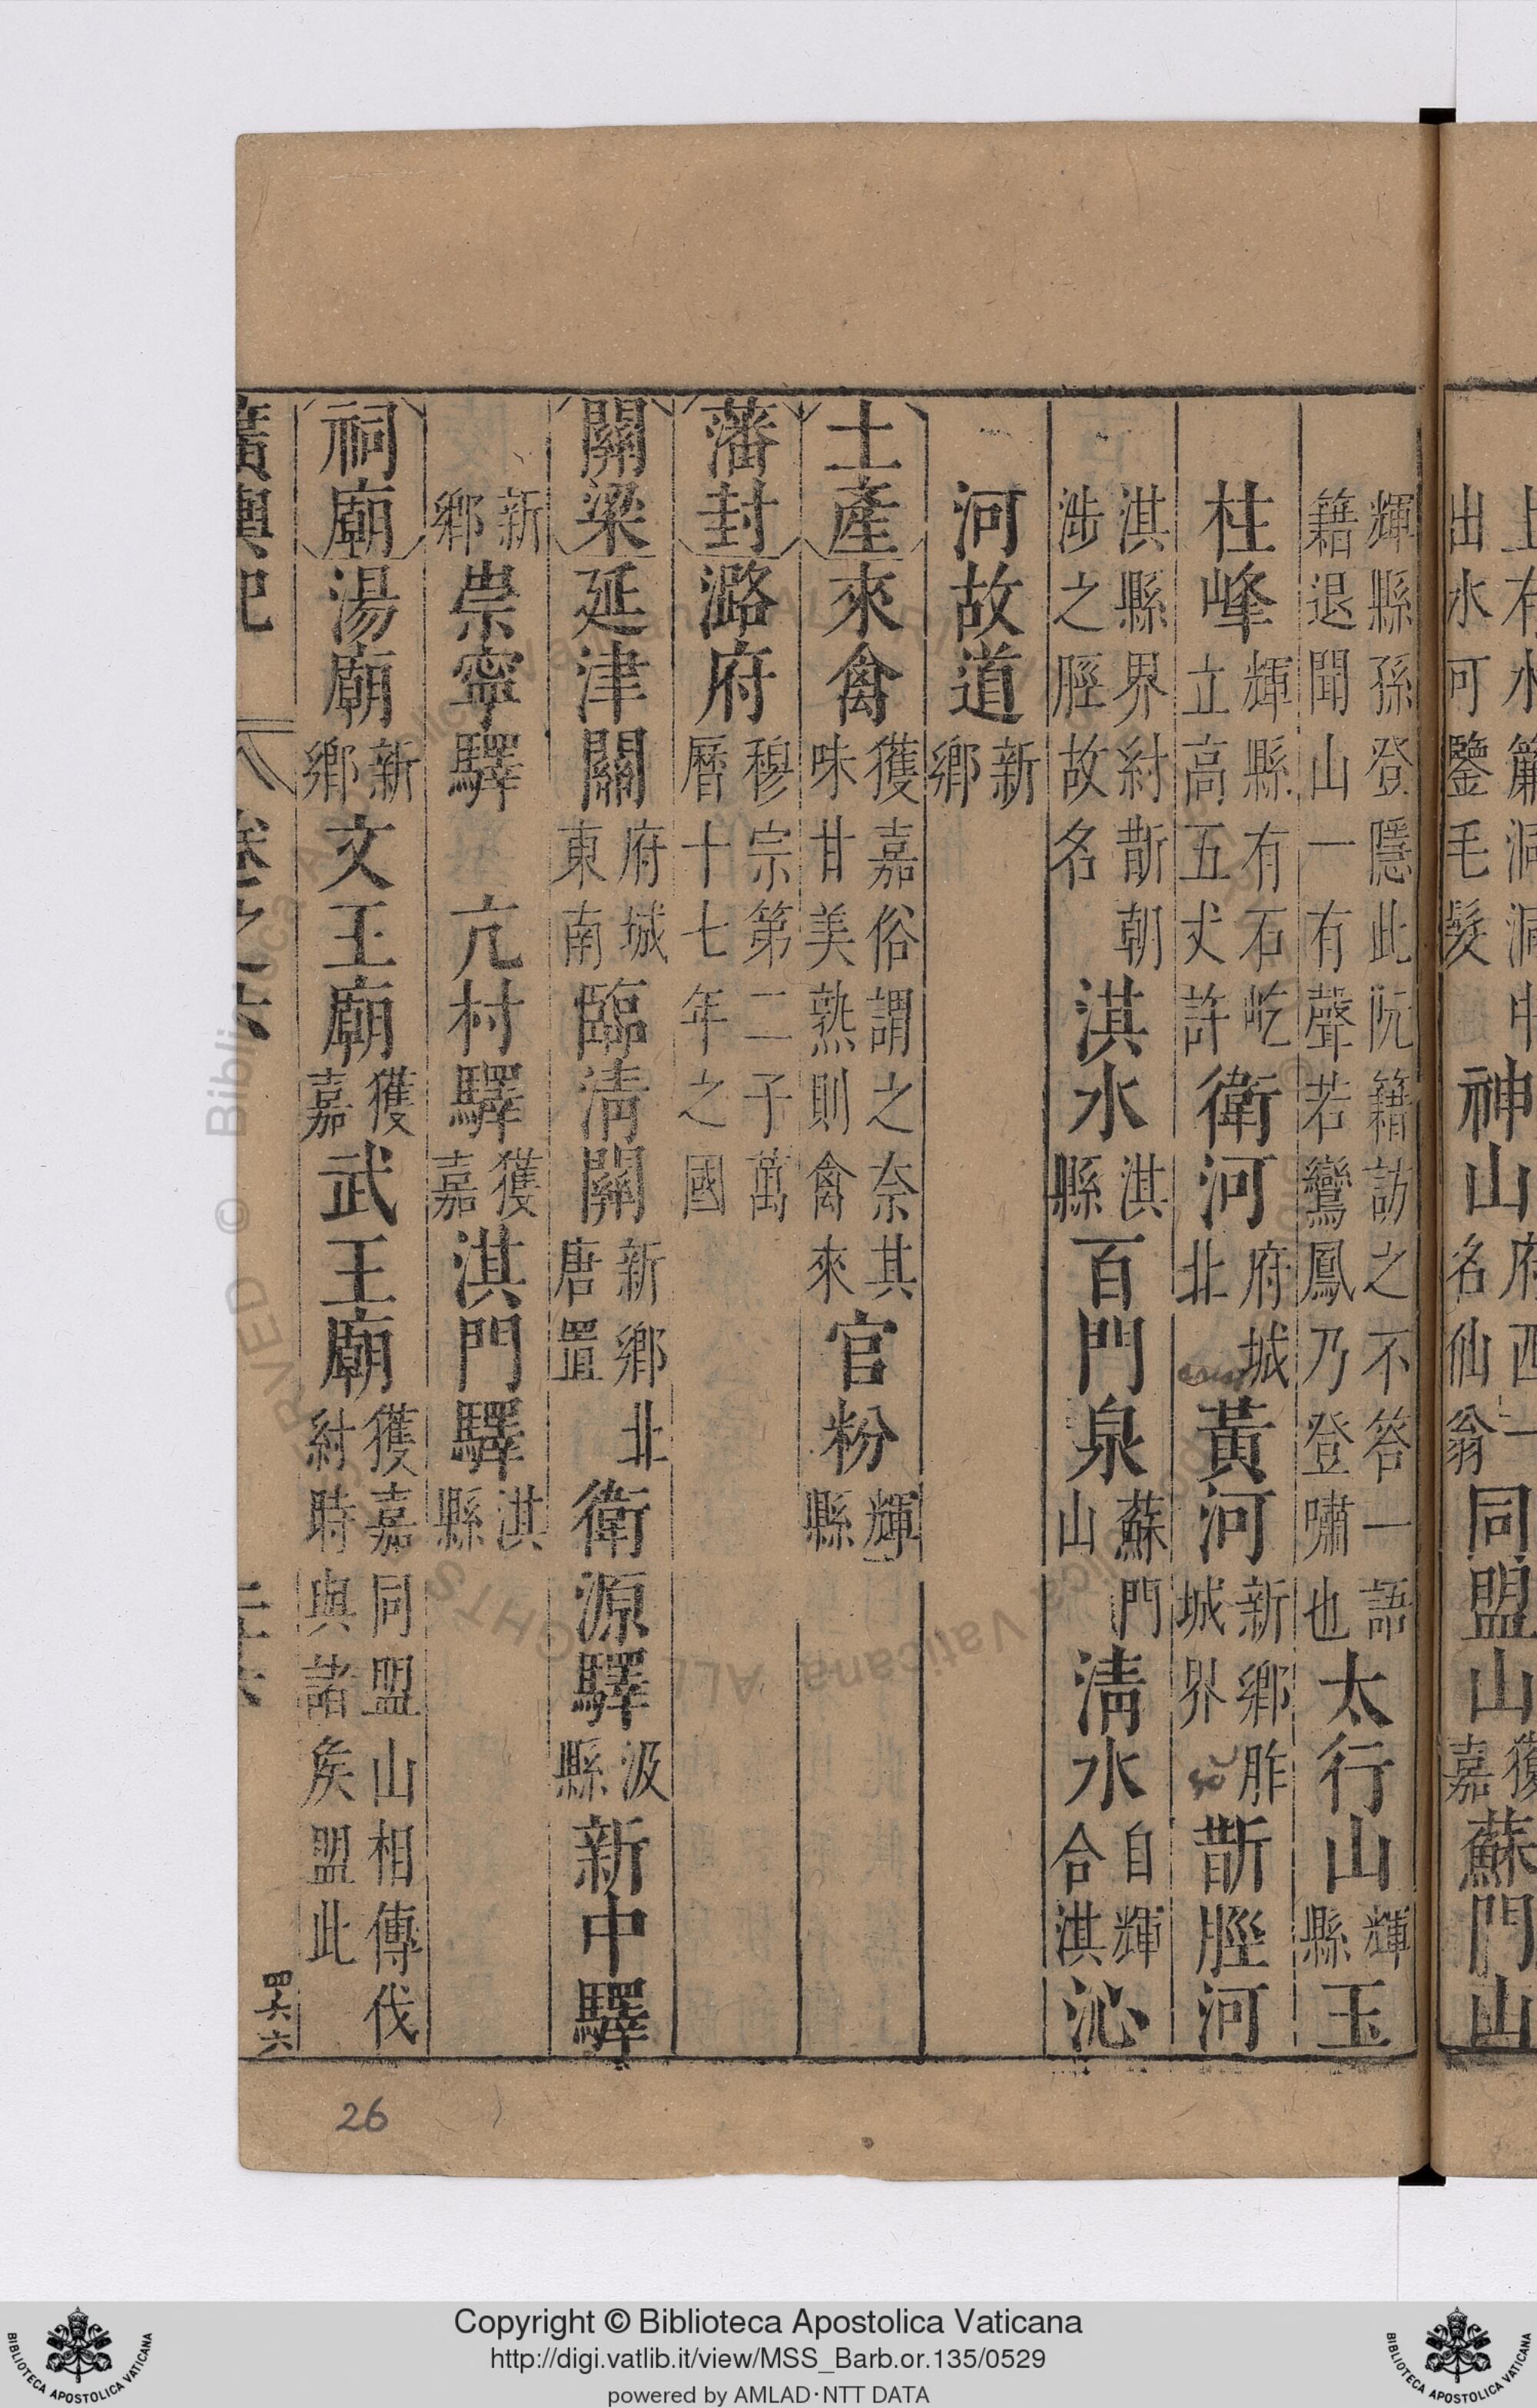 上有水簾洞洞中
出水可鑒毛髮
神山
府西一
名仙翁
同盟山
獲嘉
蘇門山
輝縣孫登隱此阮籍訪之不答一語
籍退聞山一有聲若鸞鳳乃登嘯也
太行山
輝縣
玉
柱峰
輝縣有石屹
立高五丈許
衛河
府城
北
黃河
新鄉胙
城界
斮脛河
淇縣界紂斮朝
涉之脛故名
淇水
淇縣
百門泉
蘇門山
清水
自輝
合淇
沁
河故道
新鄉
土產
來禽
獲嘉俗謂之奈其
味甘美熟則禽來
官粉
輝縣
藩封
潞府
穆宗第二子萬
曆十七年之國
關梁
延津關
府城
東南
臨清關
新鄉北
唐置
衛源驛
汲縣
新中驛
新鄉
崇寧驛
亢村驛
獲嘉
淇門驛
淇縣
祠廟
湯廟
新鄉
文王廟
獲嘉
武王廟
獲嘉同盟山相傳伐
紂時與諸矦盟此
廣輿記
卷之六
二十六
四六六
26
Copyright © Biblioteca Apostolica Vaticana
http://digi.vatlib.it/view/MSS_Barb.or.135/0529
powered by AMLAD·NTT DATA
BIBLIOTECA APOSTOLICA VATICANA
BIBLIOTECA APOSTOLICA VATICANA